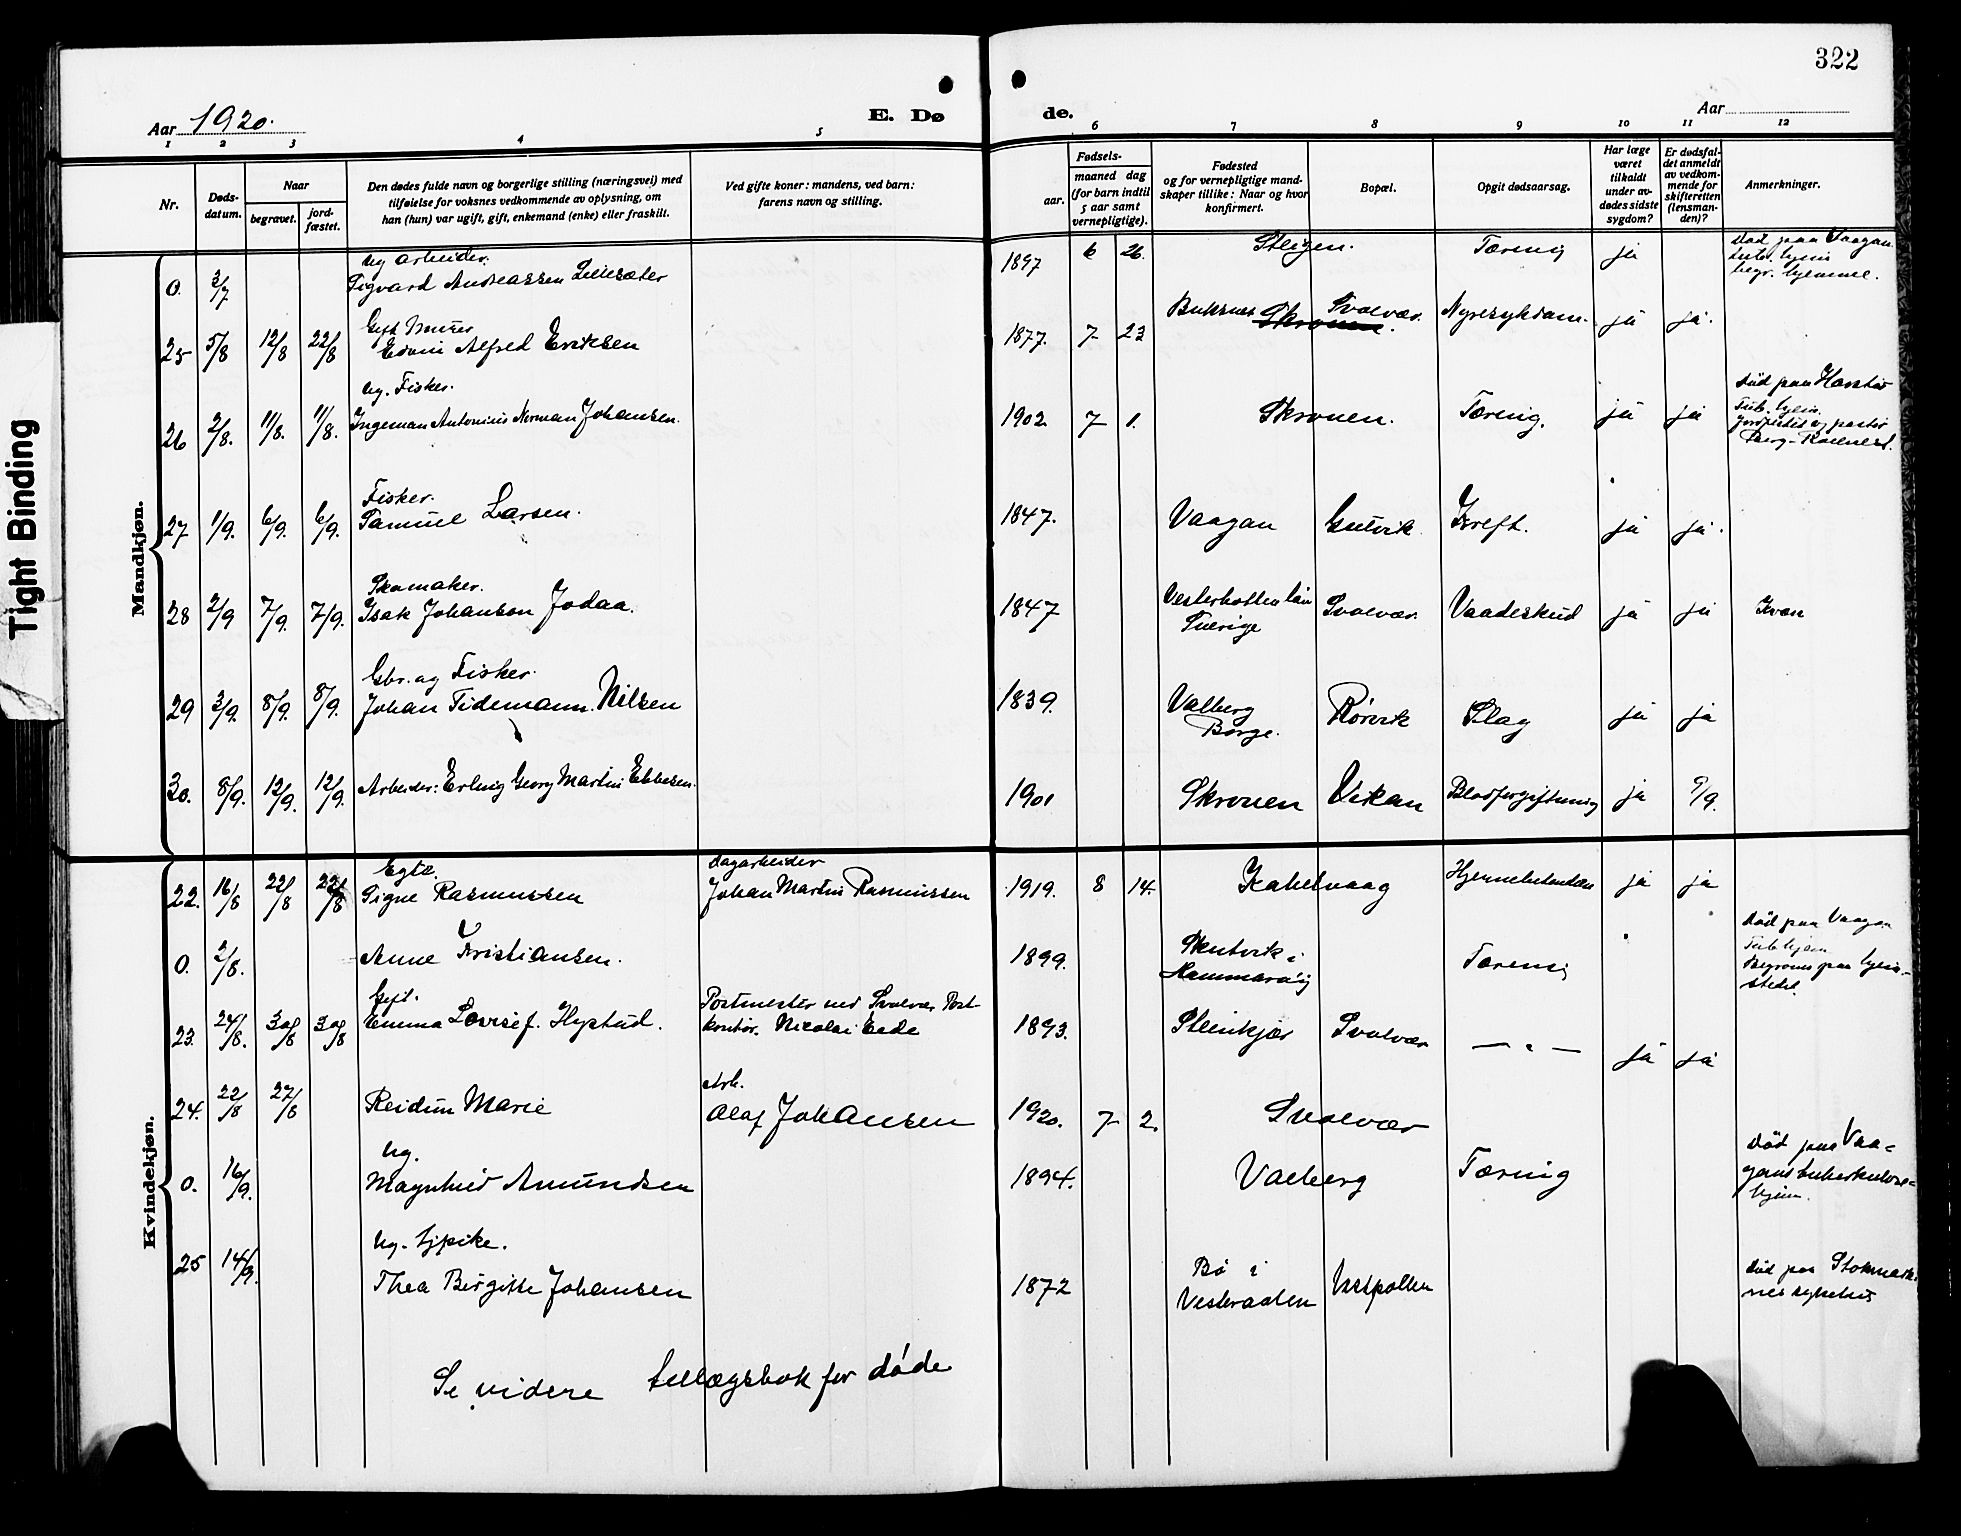 322
Tight Binding
Aar 1920.
E. Dø
de.
Aar
1 2 3 4 5 6 7 8 9 10 11 12
Nr.
Døds-
datum.
Naar
begravet.
jord-
fæstet.
Den dødes fulde navn og borgerlige stilling (næringsvei) med
tilføielse for voksnes vedkommende av oplysning, om
han (hun) var ugift, gift, enkemand (enke) eller fraskilt.
Ved gifte koner: mandens, ved barn:
farens navn og stilling.
Fødsels-
aar.
maaned dag
(for barn indtil
5 aar samt
vernepligtige).
Fødested
og for vernepligtige mand-
skaper tillike: Naar og hvor
konfirmert.
Bopæl.
Opgit dødsaarsag.
Har læge
været
tilkaldt
under av-
dødes sidste
sygdom?
Er dødsfal-
det anmeldt
av vedkom-
mende for
skifteretten
(lensman-
den)?
Anmerkninger.
Mandkjøn.
Ug arbeider.
0. 3/7 Sigvard Andreassen 1897 6 26. Steigen. Tæring ja
Død paa Vaagan
Tub. hjem
begr. hjemme.
Gift
25 5/8 12/8 22/8 Edvin Alfred Eriksen 1877. 7 23 Buksnes Skroven. Svolvær. Nyresykdom. ja ja.
Ug. Fisker.
26 2/8. 11/8. 11/8. Ingeman Antonius Norman Johansen. 1902. 7 1. Skroven. Tæring. ja ja
Død paa Harstad
Tub. hjem.
Jordfestet av pastor
Fisker.
27 1/9. 6/9. 6/9. Samuel Larsen. 1847. Vaagan Gulvik Kreft. ja ja.
Skomaker.
28 2/9 7/9. 7/9. Isak Johanson Jodaa. 1847 Vesterbotten län
Sverige Svolvær. Vaadeskud ja ja Kvæn
Gbr. og Fisker.
29 3/9. 8/9. 8/9. Johan Tidemann Nilsen 1839. Valberg
Borge. Rørvik Slag ja ja
30. 8/9. 12/9. 12/9. Arbeider: Erling Georg Martin Ebbesen. 1901 Skroven Vikan Blodforgiftning ja 9/9.
Kvindekjøn.
Egte. Dagarbeider
22. 16/8 22/8 22/8 Signe Rasmussen Johan Martin Rasmussen 1919. 8 14. Kabelvaag ja ja
0. 2/8. Anne Kristiansen. 1899. Skutvik i
Hammarøy Tæring
Død paa Vaagan
Tub hjem
Begraves paa hjem-
stedet.
Gift. Postmester ved Svolvær Post
23. 24/8. 30/8 30/8 Emma Lovise f. Hystad. kontor. Nicolai Eede 1893. Steinkjær Svolvær — " — ja ja
Arb.
24. 22/8 27/8 Reidun Marie Olaf Johansen 1920. 7 2. Svolvær
Ug.
0. 16/9. Magnhild Amundsen 1894. Valberg Tæring
Død paa Vaa-
gans tuberkulose-
hjem.
Ug. tjpike.
25 14/9. Thea Birgitte Johansen 1872 Bø i
Vesteraalen Vestpollen
Død paa Stokmark-
nes sykehus
Se videre tillægsbok for døde